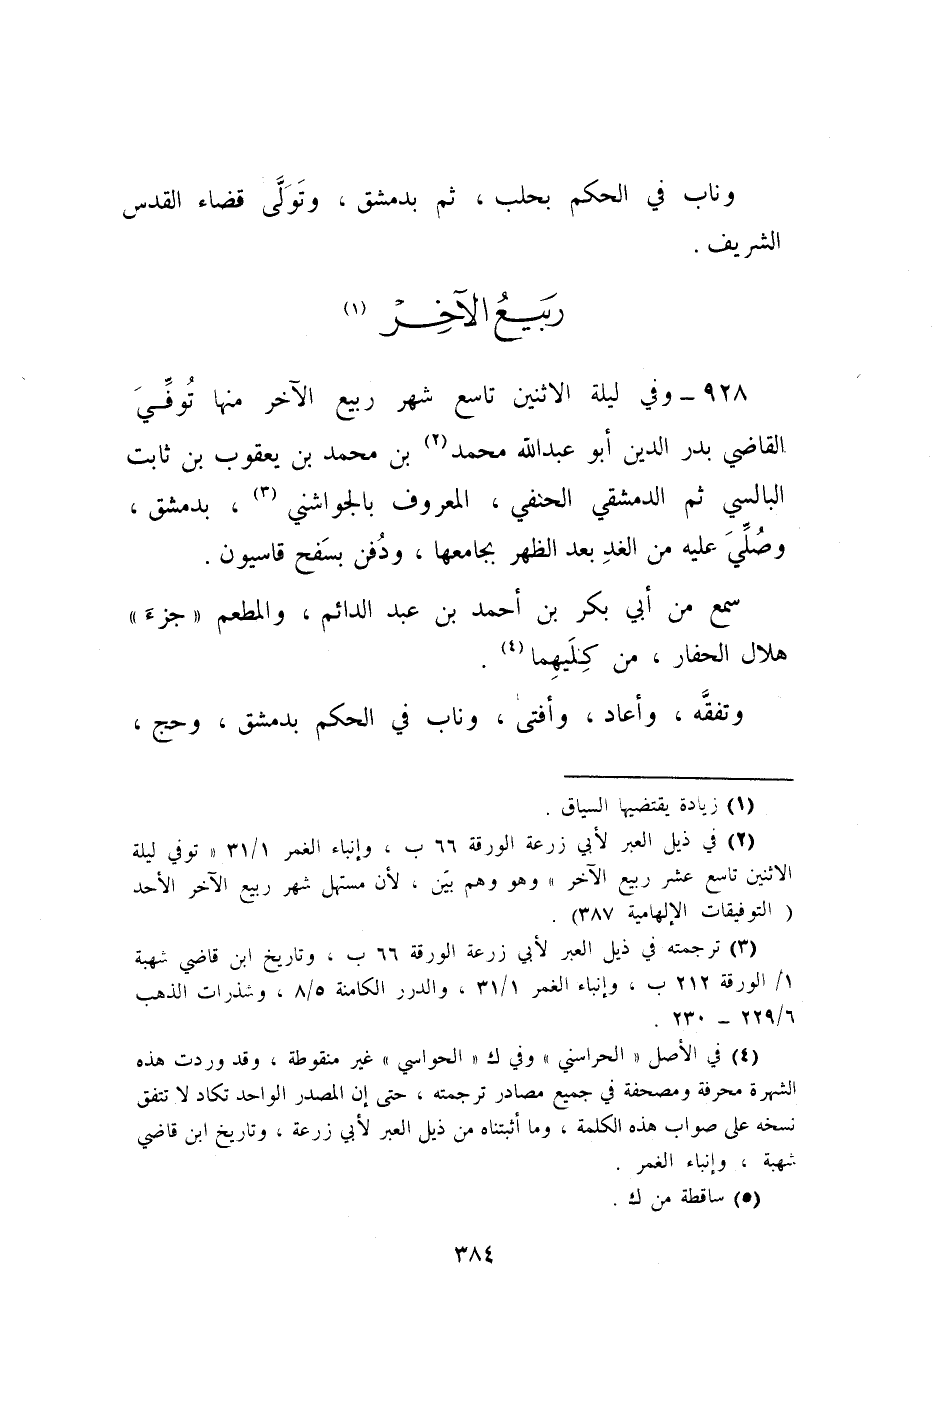 وناب في الحكم بحلب ، ثم بدمشق ، وتَوَلَّى قضاء القدس
الشريف .
رَبيعُ الآخِرْ (١)
٩٢٨ ـ وفي ليلة الاثنين تاسع شهر ربيع الآخر منها تُوفِّيَ
القاضي بدر الدين أبو عبدالله محمد(٢) بن محمد بن يعقوب بن ثابت
البالسي ثم الدمشقي الحنفي ، المعروف بالجواشني (٣) ، بدمشق ،
وصُلِّيَ عليه من الغدِ بعد الظهر بجامعها ، ودُفن بسَفح قاسيون .
سمع من أبي بكر بن أحمد بن عبد الدائم ، والمطعم « جزءَ »
هلال الحفار ، من كِلَيهِما (٤) .
وتفقَّه ، وأعاد ، وأفتىٰ ، وناب في الحكم بدمشق ، وحج ،
(١) زيادة يقتضيها السياق .
(٢) في ذيل العبر لأبي زرعة الورقة ٦٦ ب ، وإنباء الغمر ٣١/١ « توفي ليلة
الاثنين تاسع عشر ربيع الآخر » وهو وهم بيّن ، لأن مستهل شهر ربيع الآخر الأحد
( التوفيقات الإلهامية ٣٨٧) .
(٣) ترجمته في ذيل العبر لأبي زرعة الورقة ٦٦ ب ، وتاريخ ابن قاضي شهبة
١/ الورقة ٢١٢ ب ، وإنباء الغمر ٣١/١ ، والدرر الكامنة ٨/٥ ، وشذرات الذهب
٢٢٩/٦ ـ ٢٣٠ .
(٤) في الأصل « الحراسني » وفي ك « الحواسي » غير منقوطة ، وقد وردت هذه
الشهرة محرفة ومصحفة في جميع مصادر ترجمته ، حتى إن المصدر الواحد تكاد لا تتفق
نسخه على صواب هذه الكلمة ، وما أثبتناه من ذيل العبر لأبي زرعة ، وتاريخ ابن قاضي
شهبة ، وإنباء الغمر .
(٥) ساقطة من ك .
٣٨٤